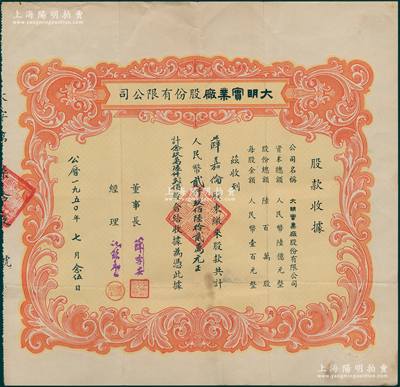 上海陽明拍賣
www.yangmingauction.com
大明實業廠股份有限公司
股款收據
公司名稱 大明實業廠股份有限公司
資本總額 人民幣陸億元整
股份總額 陸百萬股
每股金額 人民幣壹百元整
茲收到
薛嘉倫 東繳來股款共計
人民幣 萬元正
計 合給收據為憑此據
董事長
經理
公曆一九五〇年七月念伍日
號
上海陽明拍賣